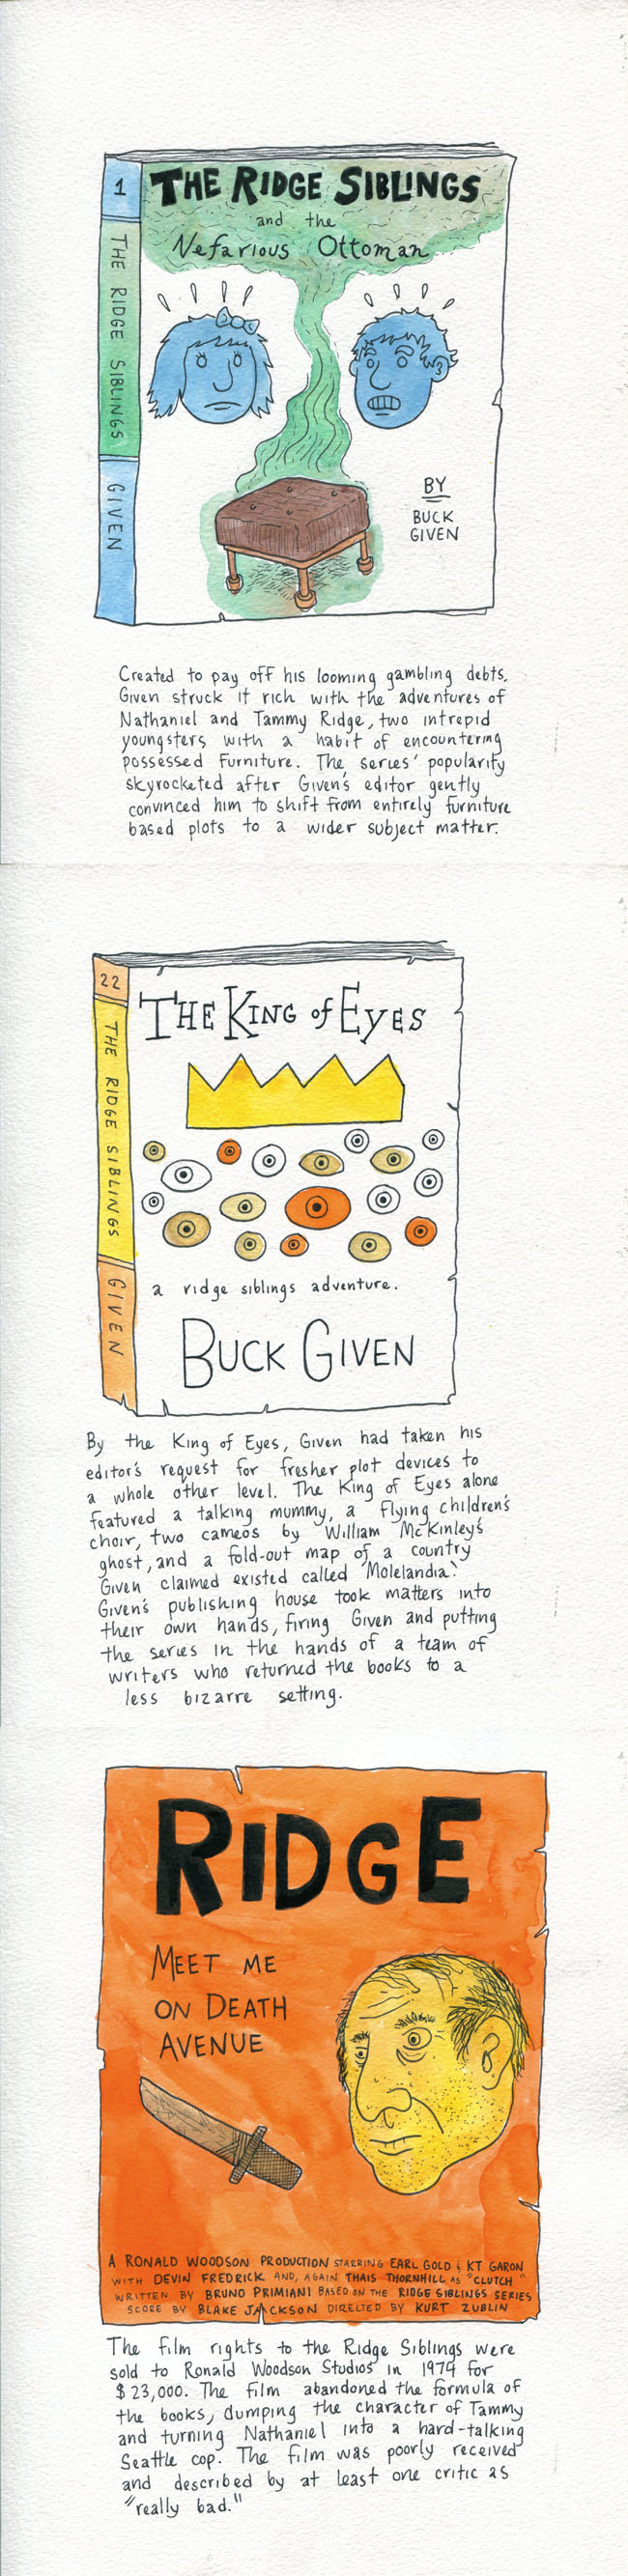 1
THE RIDGE SIBLINGS
GIVEN
THE RIDGE SIBLINGS
and the
Nefarious Ottoman
BY
BUCK
GIVEN
Created to pay off his looming gambling debts,
Given struck it rich with the adventures of
Nathaniel and Tammy Ridge, two intrepid
youngsters with a habit of encountering
possessed furniture. The series' popularity
skyrocketed after Given's editor gently
convinced him to shift from entirely furniture
based plots to a wider subject matter.
22
THE RIDGE SIBLINGS
GIVEN
THE KING of EYES
a ridge siblings adventure.
BUCK GIVEN
By the King of Eyes, Given had taken his
editor's request for fresher plot devices to
a whole other level. The King of Eyes alone
featured a talking mummy, a flying children's
choir, two cameos by William McKinley's
ghost, and a fold-out map of a country
Given claimed existed called "Molelandia."
Given's publishing house took matters into
their own hands, firing Given and putting
the series in the hands of a team of
writers who returned the books to a
less bizarre setting.
RIDGE
MEET ME
ON DEATH
AVENUE
A RONALD WOODSON PRODUCTION STARRING EARL GOLD & KT GARON
WITH DEVIN FREDRICK AND, AGAIN THAIS THORNHILL AS "CLUTCH"
WRITTEN BY BRUNO PRIMIANI BASED ON THE RIDGE SIBLINGS SERIES
SCORE BY BLAKE JACKSON DIRECTED BY KURT ZUBLIN
The film rights to the Ridge Siblings were
sold to Ronald Woodson Studios in 1974 for
$23,000. The film abandoned the formula of
the books, dumping the character of Tammy
and turning Nathaniel into a hard-talking
Seattle cop. The film was poorly received
and described by at least one critic as
"really bad."